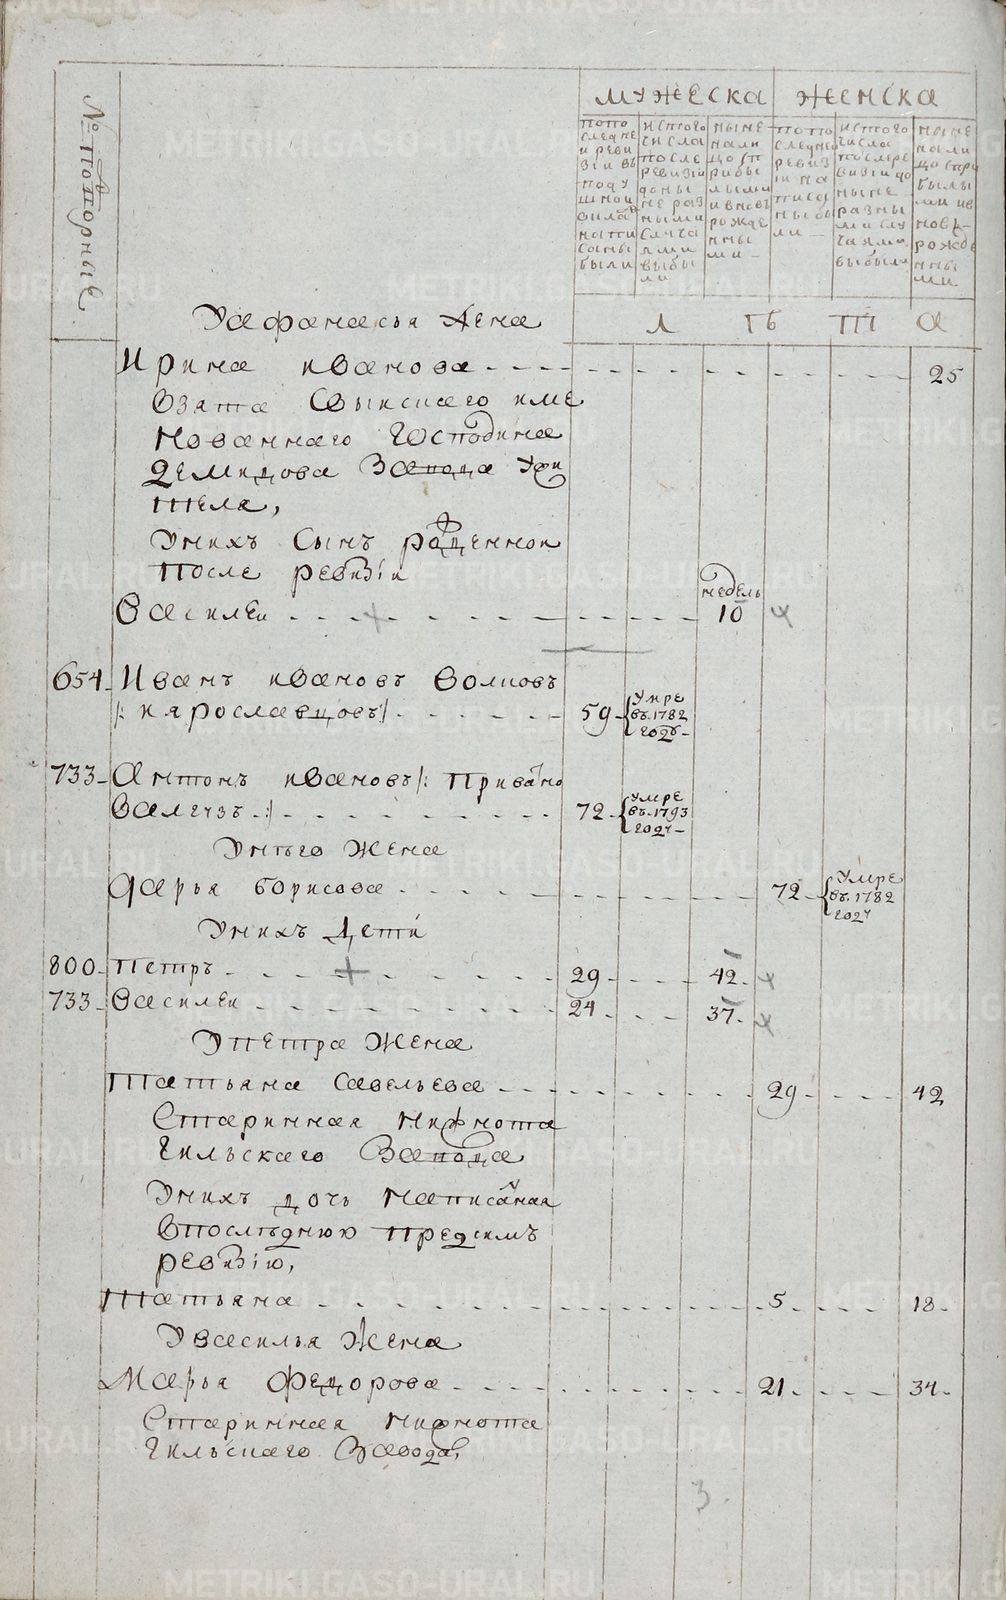 METRIKI.GASO-URAL.RU
№ попорные
МУЖЕСКА
ЖЕНСКА
попо следне и реви зіи въ поду шной окладъ напи саны были
истого числа после ревизіи доны не раз ными случа ями выбы ли
ныне нали цо сп рибы лыми ивновь рожде нны ми
попо следней ревиз іи на писа ны бы ли
истого числа послере визіи до ныне разны ми слу чаями выбыли
ныне нали цо спри былы ми ив новь рожде нны ми
Л
ГБ
ТП
А
Уафанасья Жена
Ирина иванова 25
Взята Свыксѕаго име
нованнаго Господина
Демидова Завода Ужи
теля,
Унихъ Сынъ рожденной
После ревизіи
недель
Василеи 10
654 Иванъ ивановъ Волковъ
/: и ярославцовъ/ 59 Умре въ 1782 годе
733 Антонъ ивановъ /: Привано
Валгузъ :/ 72 Умре въ 1793 годе
Унѣго Жена
Дарья борисова 72 Умре въ 1782 году
Унихъ Дети
800 Петръ 29 42
733 Василеи 24 37
Упетра Жена
Татьяна Савельева 29 42
Старинная Нижнота
гильскаго Завода
Унихъ дочь написанная
Впослѣднюю предсимъ
ревизію,
Татьяна 5 18
Увасилья Жена
Марья Федорова 21 34
Старинная Нижнота
гильскаго Завода,
3